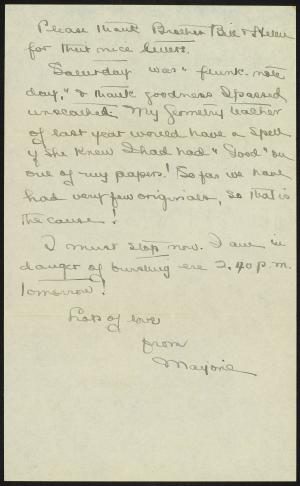 Please thank Brother Bill & Helen
for that nice letters.
Saturday was "flunk-note
day," & thank goodness I passed
unscathed. My Geometry teacher
of last year would have a spell
if she knew I had had "Good" on
one of my papers! So far we have
had very few originals, so that is
the cause!
I must stop now. I am in
danger of bursting ere 2.40 p.m.
tomorrow!
Lots of love
from
Marjorie